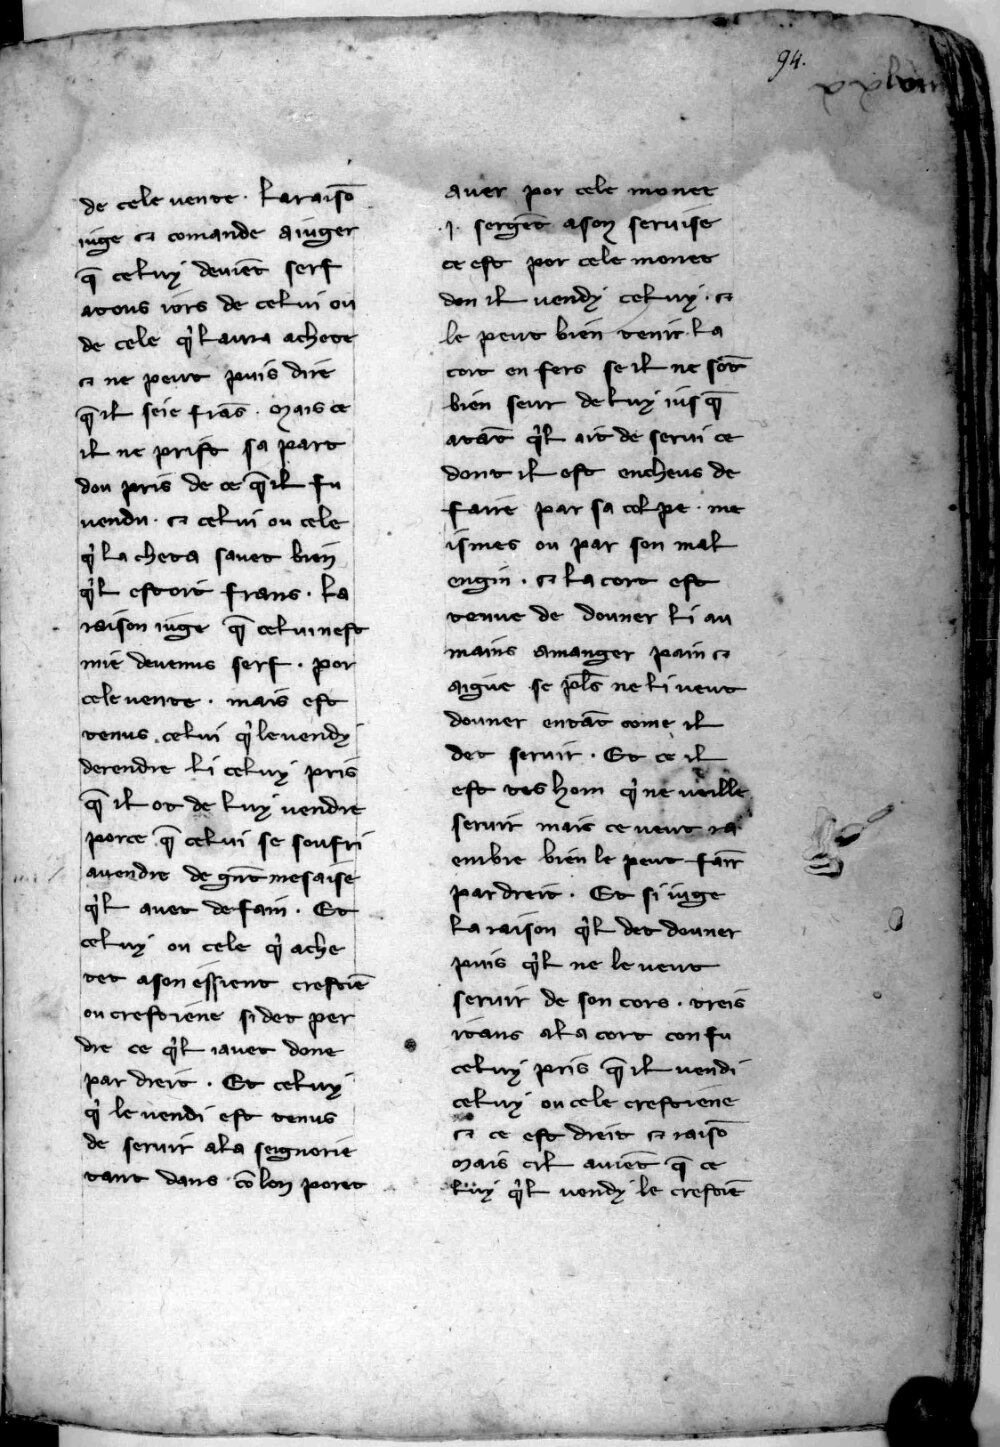 94.
de cele uente · La raisõ
iuge ⁊ comande a iuger
q̃ celuy deuiẽt serf
a tous iors de celui ou
de cele qͥ laura achete
⁊ ne peut puis dire
q̃ il seie frãs · Mais ce
il ne prist sa part
dou pris de ce q̃ il fu
uendu · ⁊ celui ou cele
qͥ la cheta sauet bien
qͥl estoit frans · La
raison iuge q̃ celui nest
mie deuenus serf · por
cele uente · mais est
tenus celui qͥ le uendy
de rendre li celuy pris
q̃ il ot de luy uendre
por ce q̃ celui se soufri
a uendre de grãt mesaise
qͥl auet de fain · Et
celuy ou cele qͥ ache
tet a son essient crestiẽ
ou crestiene si det per
dre ce qͥl i auet done
par dreit · Et celuy
qͥ le uendi est tenus
de seruir a la seignorie
tant dans cõ lon poret
auer por cele monet
·j· sergẽt a son seruise
ce est por cele monet
don il uendy celuy · ⁊
le peut bien tenir la
cort en fers se il ne sõt
bien seur de luy iusq̃
a tãt qͥl ait de serui ce
dont il est encheus de
faire par sa colpe · me
ismes ou par son mal
engin · ⁊ la cort est
tenue de donner li au
mains a manger pain ⁊
aigue se pl̃s ne li ueut
donner entãt come il
det seruir · Et ce il
est tes hom qͥ ne ueille
seruir mais ce ueut ra
embre bien le peut fair̃
par dreit · Et si iuge
la raison qͥl det donner
puis qͥl ne le ueut
seruir de son cors · treis
itans a la cort con fu
celuy pris q̃ il uendi
celuy ou cele crestiene
⁊ ce est dreit ⁊ raisõ
Mais cil auiẽt q̃ ce
luy qͥl uendy le crestiẽ